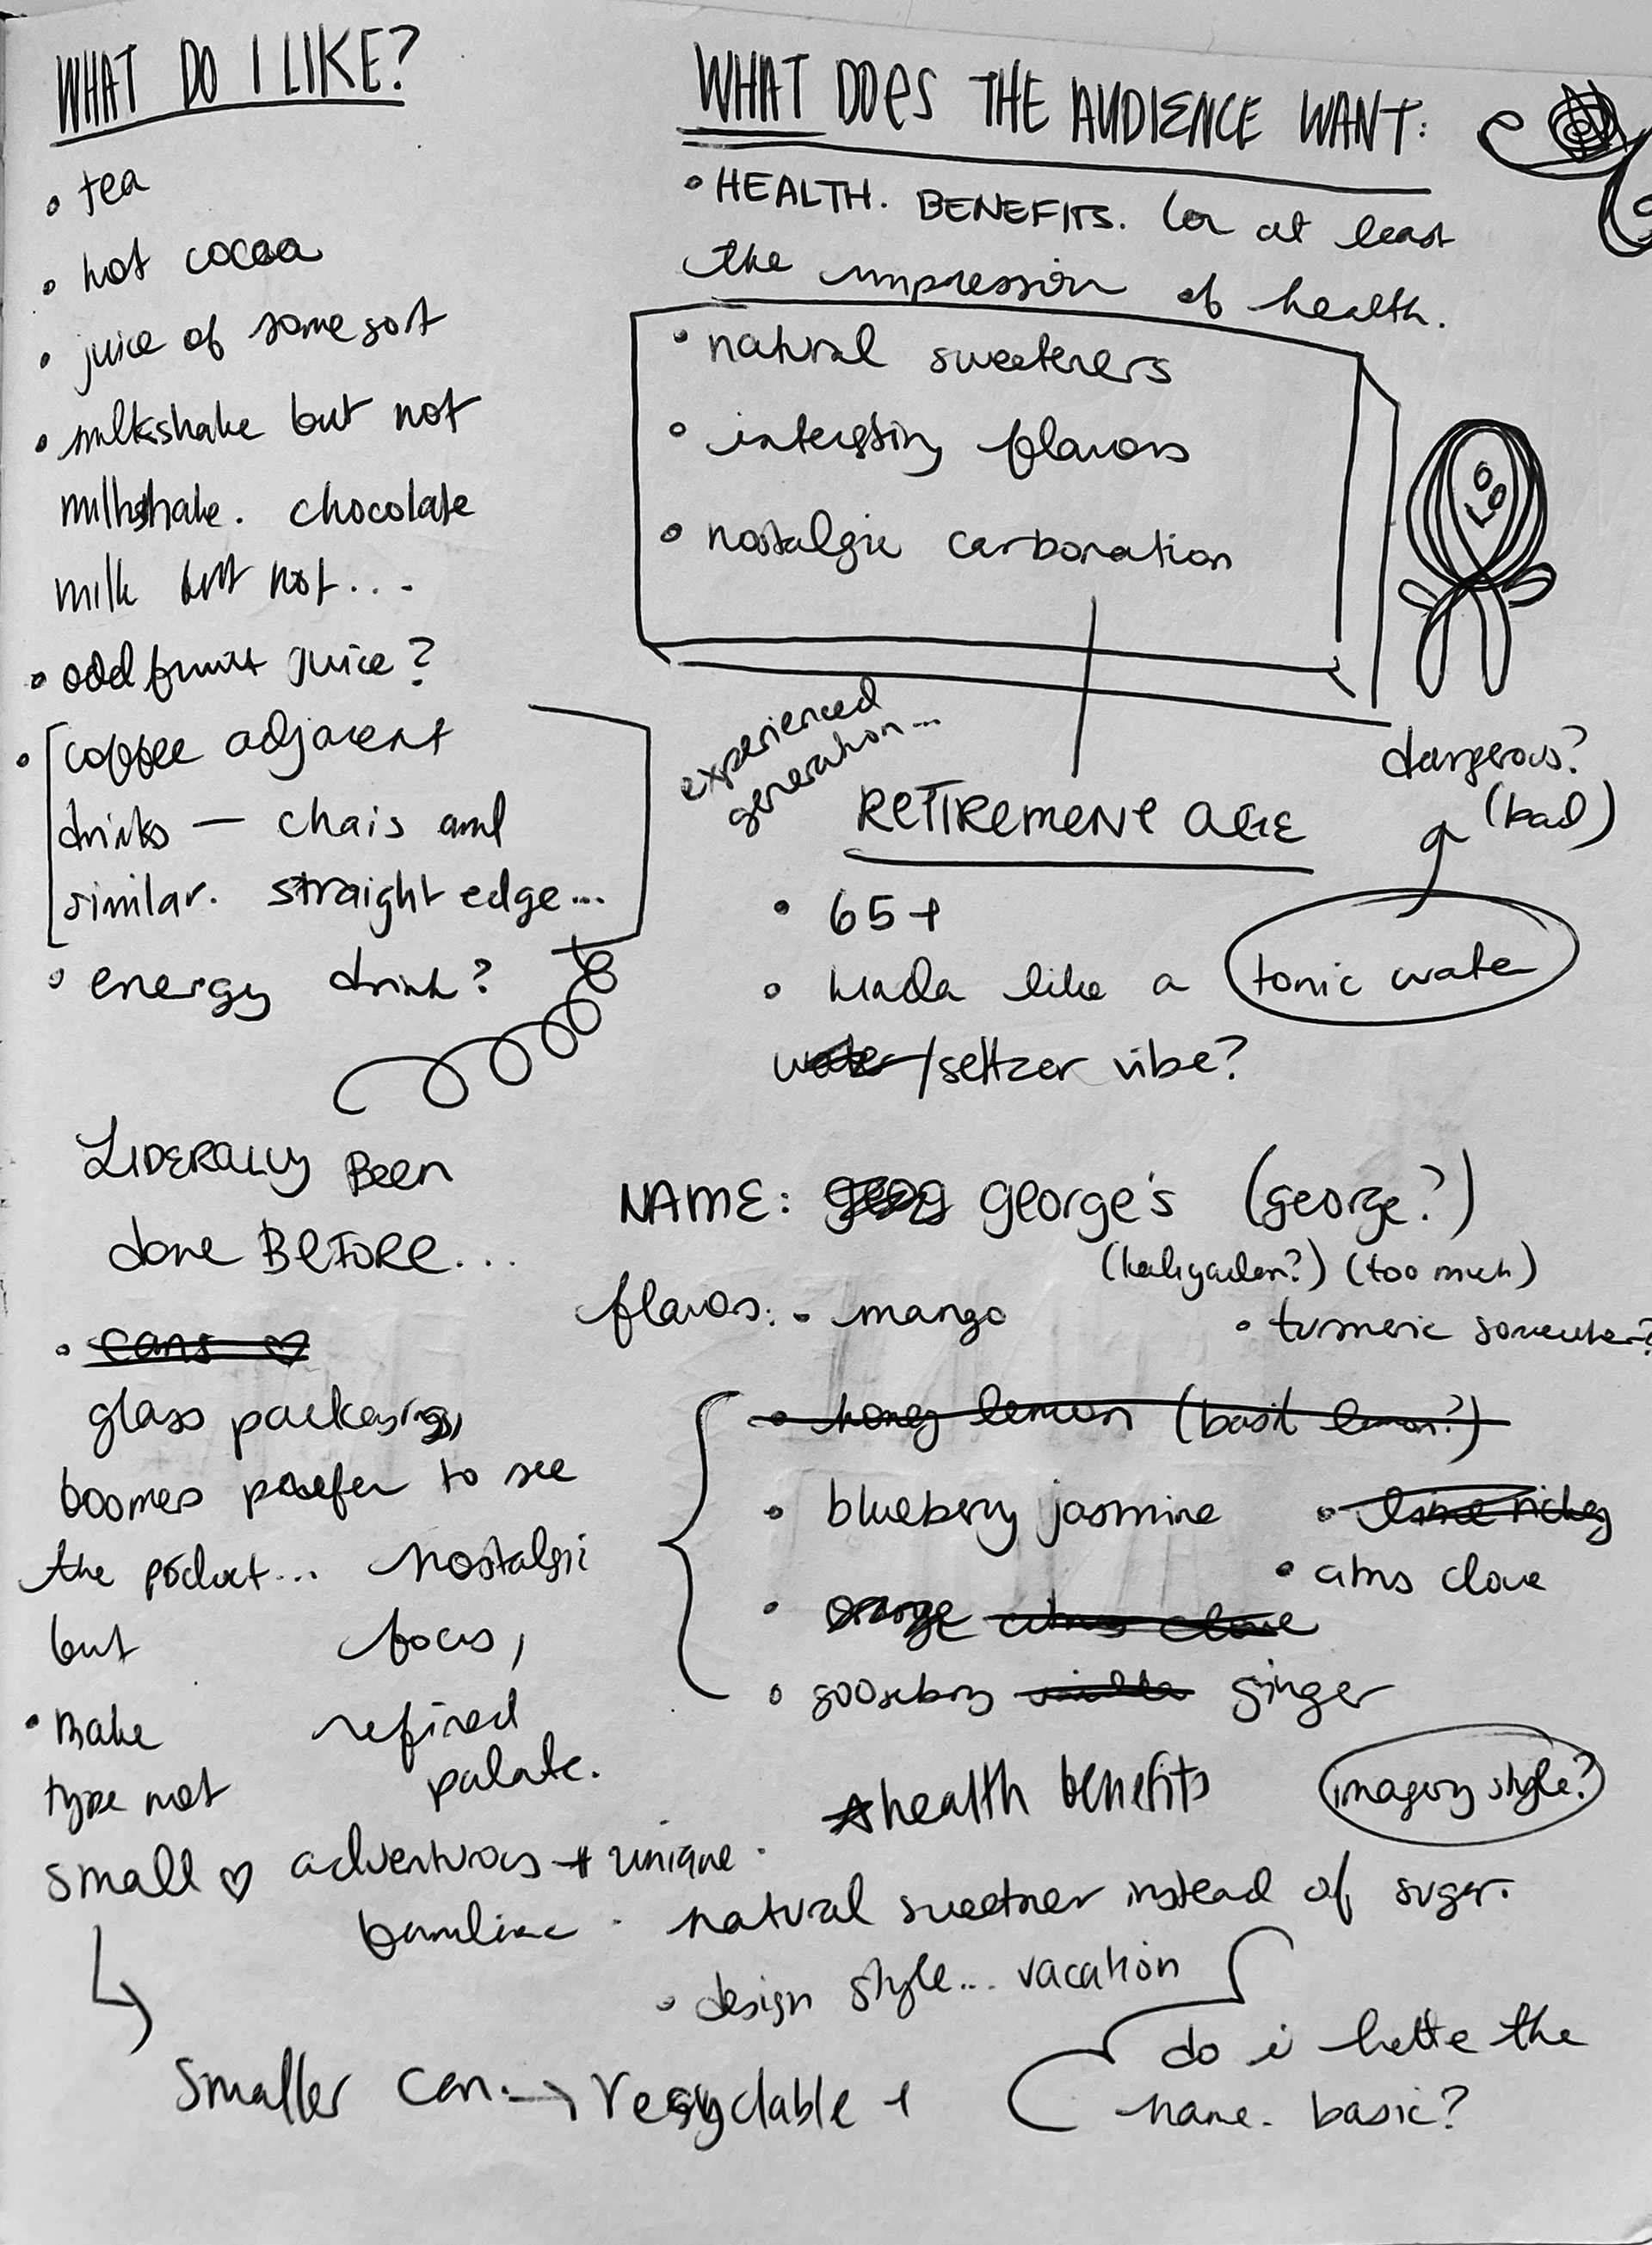 WHAT DO I LIKE?
• tea
• hot cocoa
• juice of some sort
• milkshake but not
milkshake. chocolate
milk but not....
• odd fruit juice?
• coffee adjacent
drinks — chais and
similar. straight edge...
• energy drink?
LIDERALLY Been
done BEFORE...
• cans ♡
glass packaging,
boomers prefer to see
the product... nostalgi
but focus,
• make refined
type not palate.
small ♡ adventurous + unique.
smaller can. → recyclable +
WHAT DOES THE AUDIENCE WANT:
• HEALTH. BENEFITS. (or at least
the impression of health.
• natural sweeteners
• interesting flavors
• nostalgic carbonation
experienced
generation...
RETIREMENT AGE
dangerous?
(bad)
• 65+
• kinda like a tonic water
water/seltzer vibe?
NAME: george's (george?)
(too much)
flavors: • mango
• turmeric
• honey lemon (basil lemon?)
• blueberry jasmine • lime rickey
• citrus clove
• orange citrus clove
• gooseberry vanilla ginger
☆health benefits
imagery style?
• natural sweetner instead of sugar.
• design style... vacation
do i hate the
name. basic?